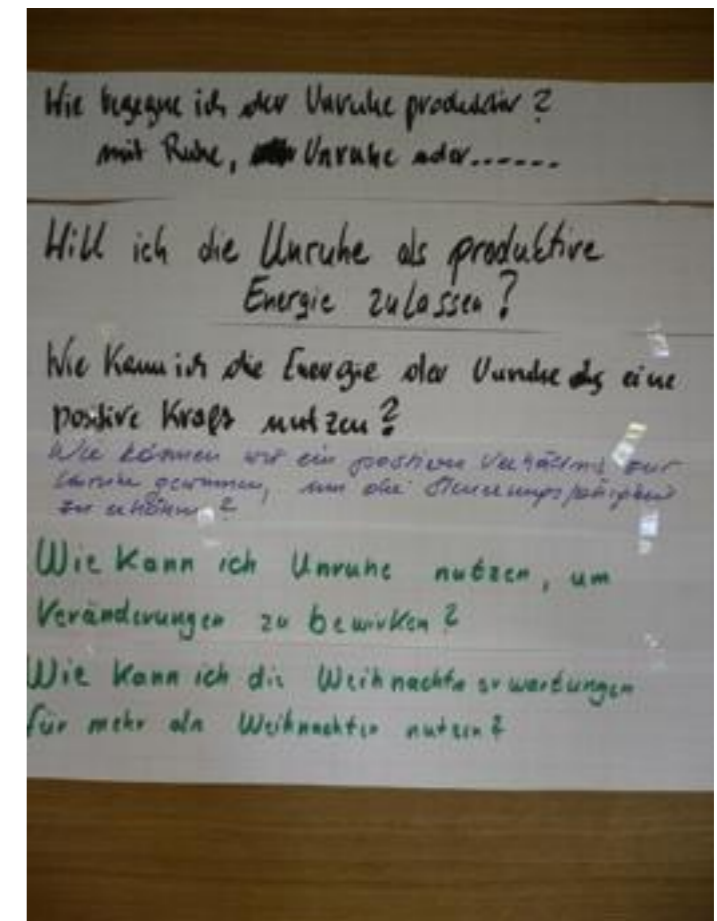 Wie begegne ich der Unruhe produktiv?
mit Ruhe, Unruhe oder......
Will ich die Unruhe als produktive
Energie zulassen?
Wie kann ich die Energie der Unruhe als eine
positive Kraft nutzen?
Wie können wir ein positives Verhältnis zur
Unruhe gewinnen, um die
zu erhöhen?
Wie kann ich Unruhe nutzen, um
Veränderungen zu bewirken?
Wie kann ich die Weihnachtserwartungen
für mehr als Weihnachten nutzen?